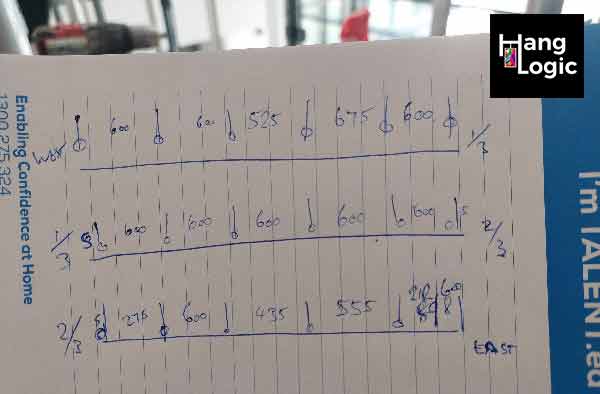 Hang
Logic
Enabling Confidence at Home
1300 275 324
I'm TALENT.ed
West 600 600 525 675 600 1/3
1/3 5 600 600 600 600 600 5 2/3
2/3 5 275 600 435 555 600
EAST